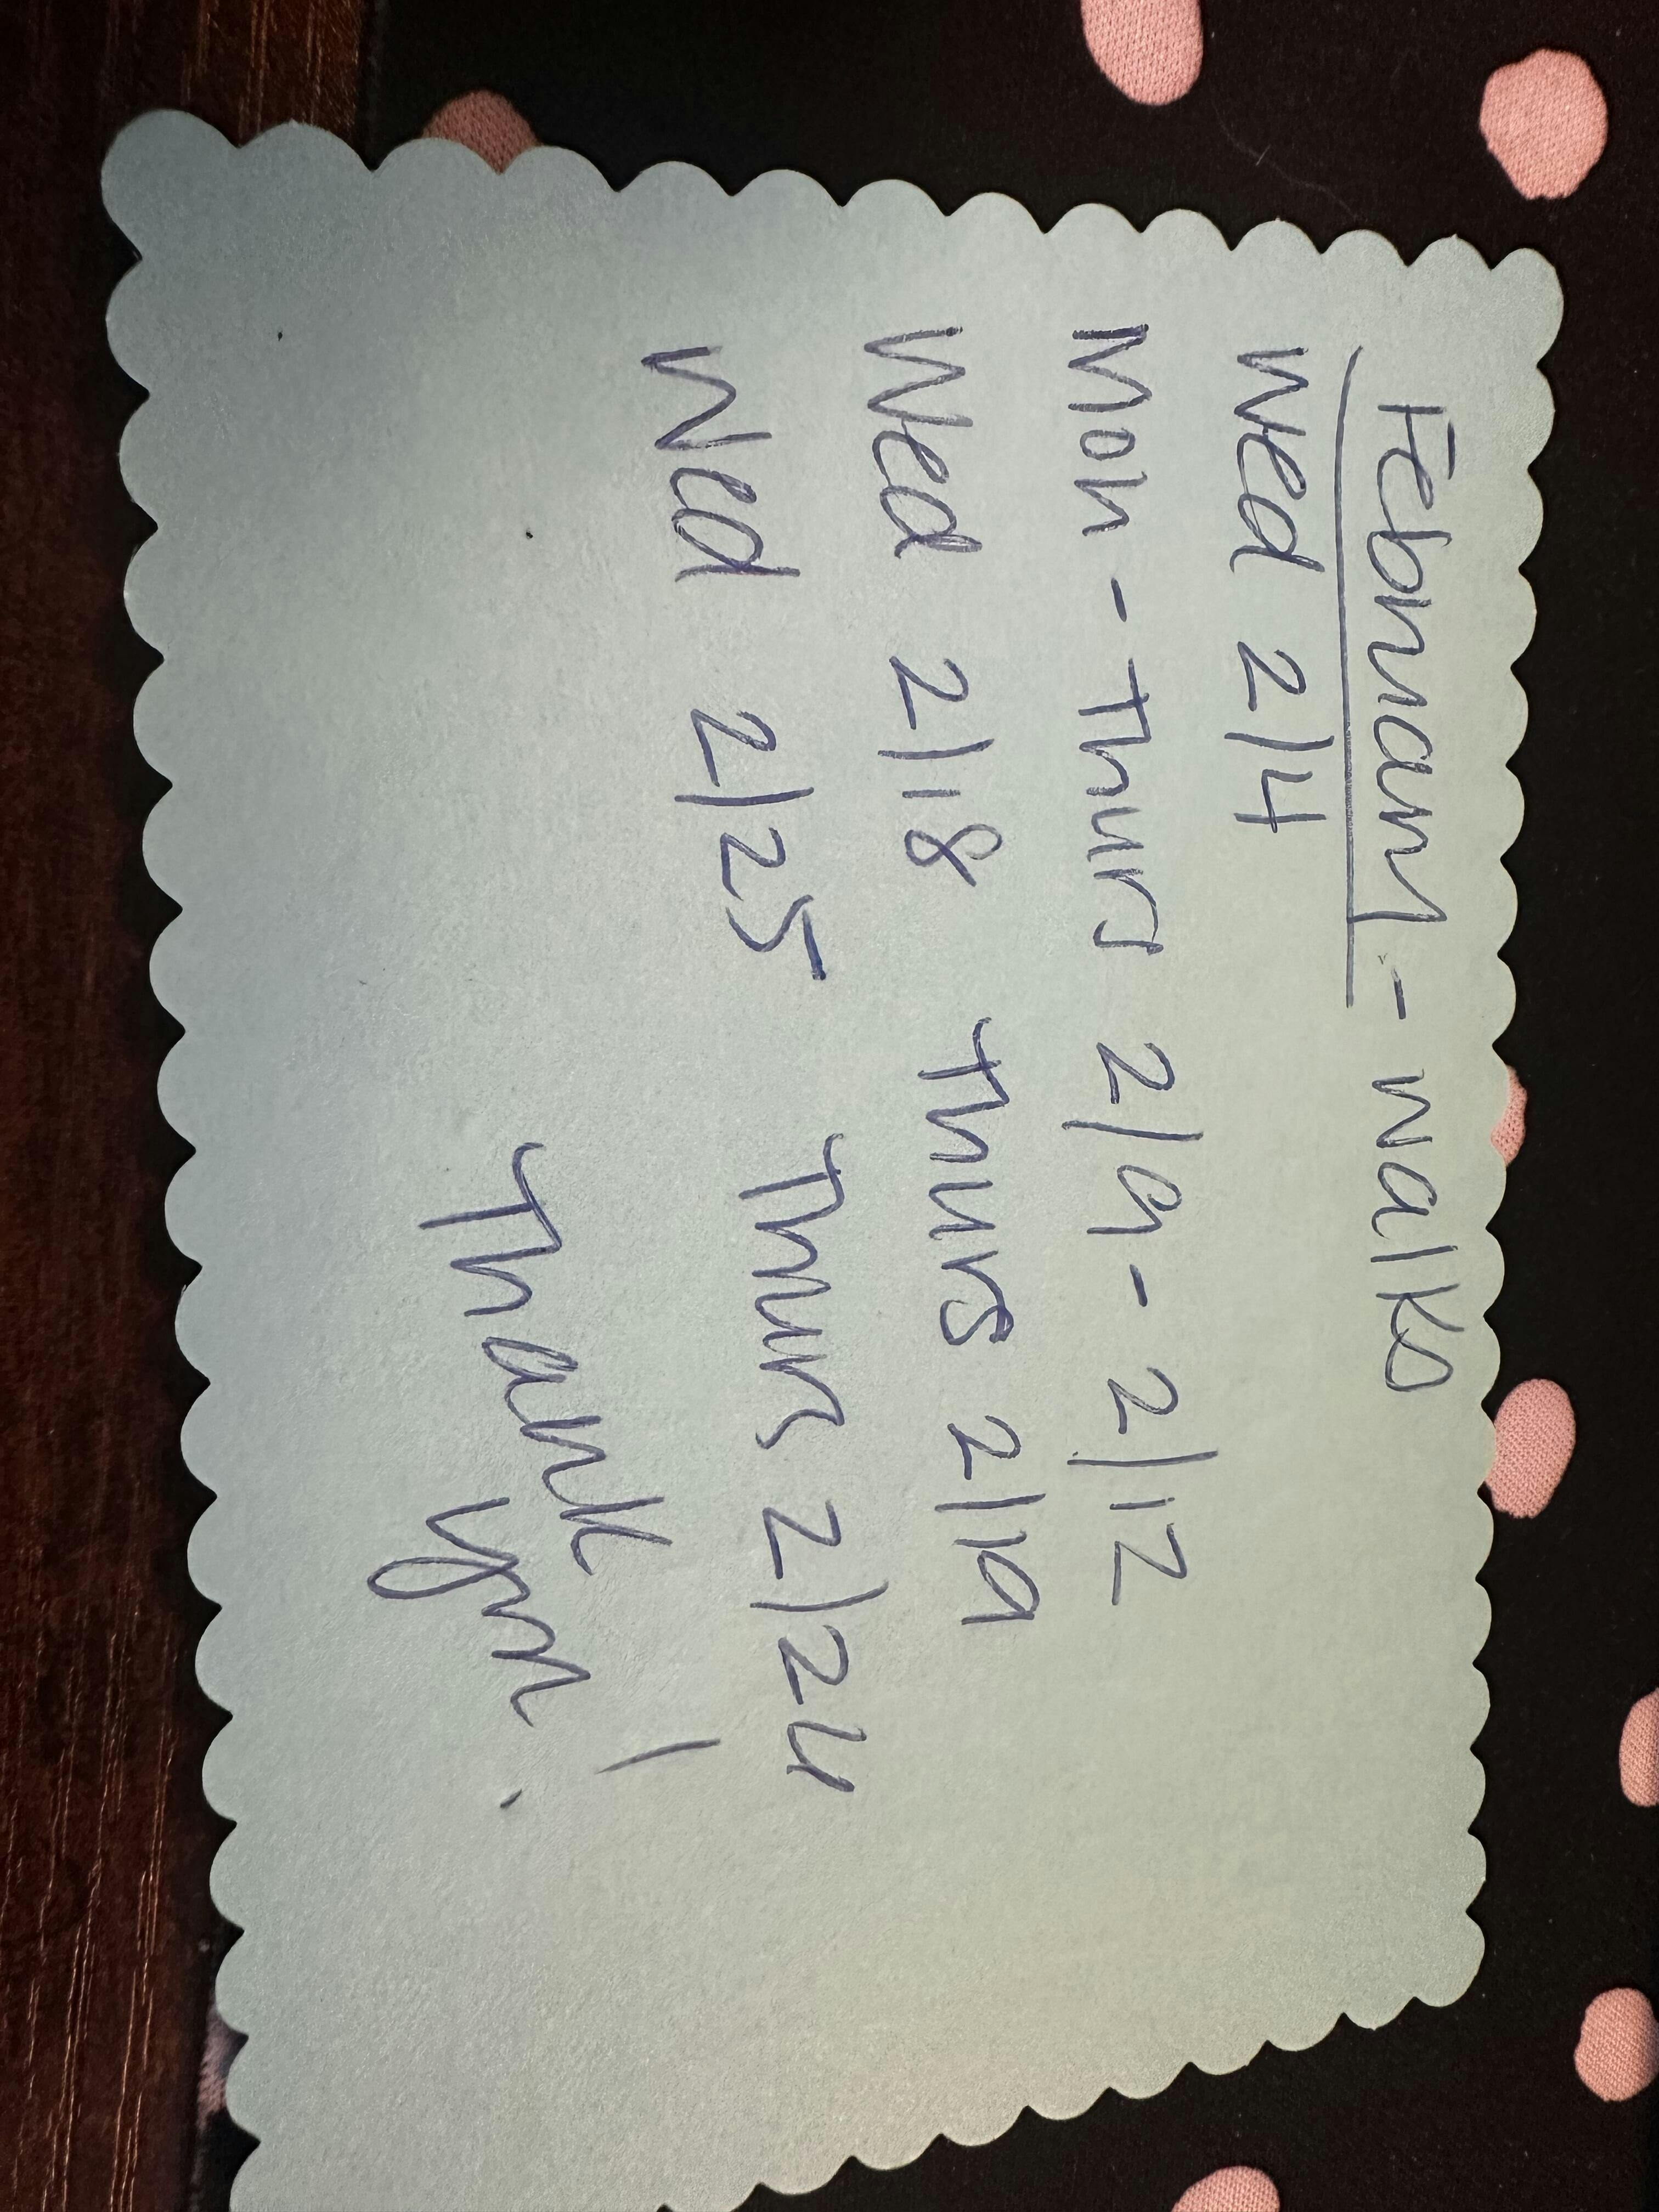 February - walks
Wed 2/4
Mon - Thurs 2/9 - 2/12
Wed 2/18 Thurs 2/19
Wed 2/25 Thurs 2/24
Thank you!